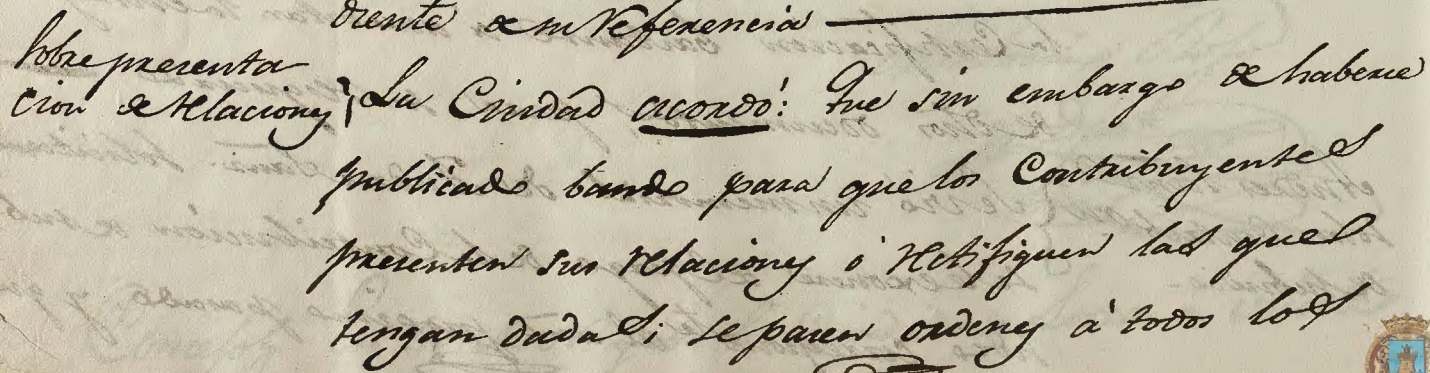 diente de su referencia
Sobre presenta
cion de relaciones
La Ciudad acordó: Que sin embargo de haberse
publicado bando para que los Contribuyentes
presenten sus relaciones ó retifiquen las que
tengan dadas; se pasen ordenes à todos los